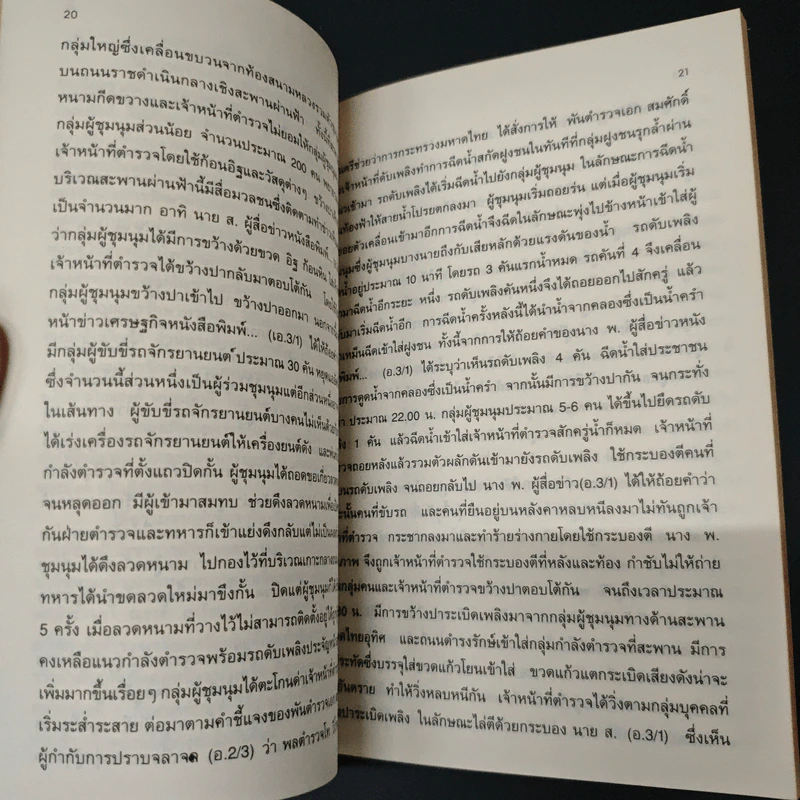 20
กลุ่มใหญ่ซึ่งเคลื่อนขบวนจากท้องสนามหลวงรวมตัว
บนถนนราชดำเนินกลางเชิงสะพานผ่านฟ้า
หนามกีดขวางและเจ้าหน้าที่ตำรวจไม่ยอมให้กลุ่มผู้ชุมนุม
กลุ่มผู้ชุมนุมส่วนน้อย จำนวนประมาณ 200 คน
เจ้าหน้าที่ตำรวจโดยใช้ก้อนอิฐและวัสดุต่างๆ
บริเวณสะพานผ่านฟ้านี้มีสื่อมวลชนซึ่งติดตามทำข่าว
เป็นจำนวนมาก อาทิ นาย ส. ผู้สื่อข่าวหนังสือพิมพ์
ว่ากลุ่มผู้ชุมนุมได้มีการขว้างด้วยขวด อิฐ ก้อนหิน
เจ้าหน้าที่ตำรวจได้ขว้างปากลับมาตอบโต้กัน
กลุ่มผู้ชุมนุมขว้างปาเข้าไป ขว้างปาออกมา
หน้าข่าวเศรษฐกิจหนังสือพิมพ์... (เอ.3/1) ได้ให้
มีกลุ่มผู้ขับขี่รถจักรยานยนต์ ประมาณ 30 คัน
ซึ่งจำนวนนี้ส่วนหนึ่งเป็นผู้ร่วมชุมนุมแต่อีกส่วน
ในเส้นทาง ผู้ขับขี่รถจักรยานยนต์บางคนไม่เห็นด้วย
ได้เร่งเครื่องรถจักรยานยนต์ให้เครื่องยนต์ดัง และ
กำลังตำรวจที่ตั้งแถวปิดกั้น ผู้ชุมนุมได้ถอดขอเกี่ยว
จนหลุดออก มีผู้เข้ามาสมทบ ช่วยดึงลวดหนาม
กันฝ่ายตำรวจและทหารก็เข้าแย่งดึงกลับแต่ไม่เป็นผล
ชุมนุมได้ดึงลวดหนาม ไปกองไว้ที่บริเวณเกาะกลาง
ทหารได้นำขดลวดใหม่มาขึงกั้น ปิดแต่ผู้ชุมนุมก็
5 ครั้ง เมื่อลวดหนามที่วางไว้ไม่สามารถติดตั้งอยู่ได้
คงเหลือแนวกำลังตำรวจพร้อมรถดับเพลิง
เพิ่มมากขึ้นเรื่อยๆ กลุ่มผู้ชุมนุมได้ตะโกนด่าเจ้าหน้าที่
เริ่มระส่ำระสาย ต่อมาตามคำชี้แจงของพันตำรวจเอก
ผู้กำกับการปราบจลาจล (อ.2/3) ว่า พลตำรวจโท
21
นตรีช่วยว่าการกระทรวงมหาดไทย ได้สั่งการให้ พันตำรวจเอก สมศักดิ์
เจ้าหน้าที่ดับเพลิงทำการฉีดน้ำสกัดฝูงชนในทันทีที่กลุ่มฝูงชนรุกล้ำผ่าน
เข้ามา รถดับเพลิงได้เริ่มฉีดน้ำไปยังกลุ่มผู้ชุมนุม ในลักษณะการฉีดน้ำ
ท้องฟ้าให้สายน้ำโปรยตกลงมา ผู้ชุมนุมเริ่มถอยร่น แต่เมื่อผู้ชุมนุมเริ่ม
ตัวเคลื่อนเข้ามาอีกการฉีดน้ำจึงฉีดในลักษณะพุ่งไปข้างหน้าเข้าใส่ผู้
นุมซึ่งผู้ชุมนุมบางนายถึงกับเสียหลักด้วยแรงดันของน้ำ รถดับเพลิง
น้ำอยู่ประมาณ 10 นาที โดยรถ 3 คันแรกน้ำหมด รถคันที่ 4 จึงเคลื่อน
มาเริ่มฉีดน้ำอีกระยะ หนึ่ง รถดับเพลิงคันหนึ่งจึงได้ถอยออกไปสักครู่ แล้ว
ฉีดน้ำอีก การฉีดน้ำครั้งหลังนี้ได้นำน้ำจากคลองซึ่งเป็นน้ำครำ
เหม็นฉีดเข้าใส่ฝูงชน ทั้งนี้จากการให้ถ้อยคำของนาง พ. ผู้สื่อข่าวหนัง
พิมพ์... (อ.3/1) ได้ระบุว่าเห็นรถดับเพลิง 4 คัน ฉีดน้ำใส่ประชาชน
การดูดน้ำจากคลองซึ่งเป็นน้ำครำ จากนั้นมีการขว้างปากัน จนกระทั่ง
ประมาณ 22.00 น. กลุ่มผู้ชุมนุมประมาณ 5-6 คน ได้ขึ้นไปยึดรถดับ
1 คัน แล้วฉีดน้ำเข้าใส่เจ้าหน้าที่ตำรวจสักครู่น้ำก็หมด เจ้าหน้าที่
ถอยหลังแล้วรวมตัวผลักดันเข้ามายังรถดับเพลิง ใช้กระบองตีคนที่
บนรถดับเพลิง จนถอยกลับไป นาง พ. ผู้สื่อข่าว(อ.3/1) ได้ให้ถ้อยคำว่า
นั้นคนที่ขับรถ และคนที่ยืนอยู่บนหลังคาหลบหนีลงมาไม่ทันถูกเจ้า
ที่ตำรวจ กระชากลงมาและทำร้ายร่างกายโดยใช้กระบองตี นาง พ.
ภาพ จึงถูกเจ้าหน้าที่ตำรวจใช้กระบองตีที่หลังและท้อง กำชับไม่ให้ถ่าย
กลุ่มคนและเจ้าหน้าที่ตำรวจขว้างปาตอบโต้กัน จนถึงเวลาประมาณ
น. มีการขว้างปาระเบิดเพลิงมาจากกลุ่มผู้ชุมนุมทางด้านสะพาน
ไทยอุทิศ และถนนดำรงรักษ์เข้าใส่กลุ่มกำลังตำรวจที่สะพาน มีการ
ะทัดซึ่งบรรจุใส่ขวดแก้วโยนเข้าใส่ ขวดแก้วแตกระเบิดเสียงดังน่าจะ
อันตราย ทำให้วิ่งหลบหนีกัน เจ้าหน้าที่ตำรวจได้วิ่งตามกลุ่มบุคคลที่
ปาระเบิดเพลิง ในลักษณะไล่ตีด้วยกระบอง นาย ส. (อ.3/1) ซึ่งเห็น